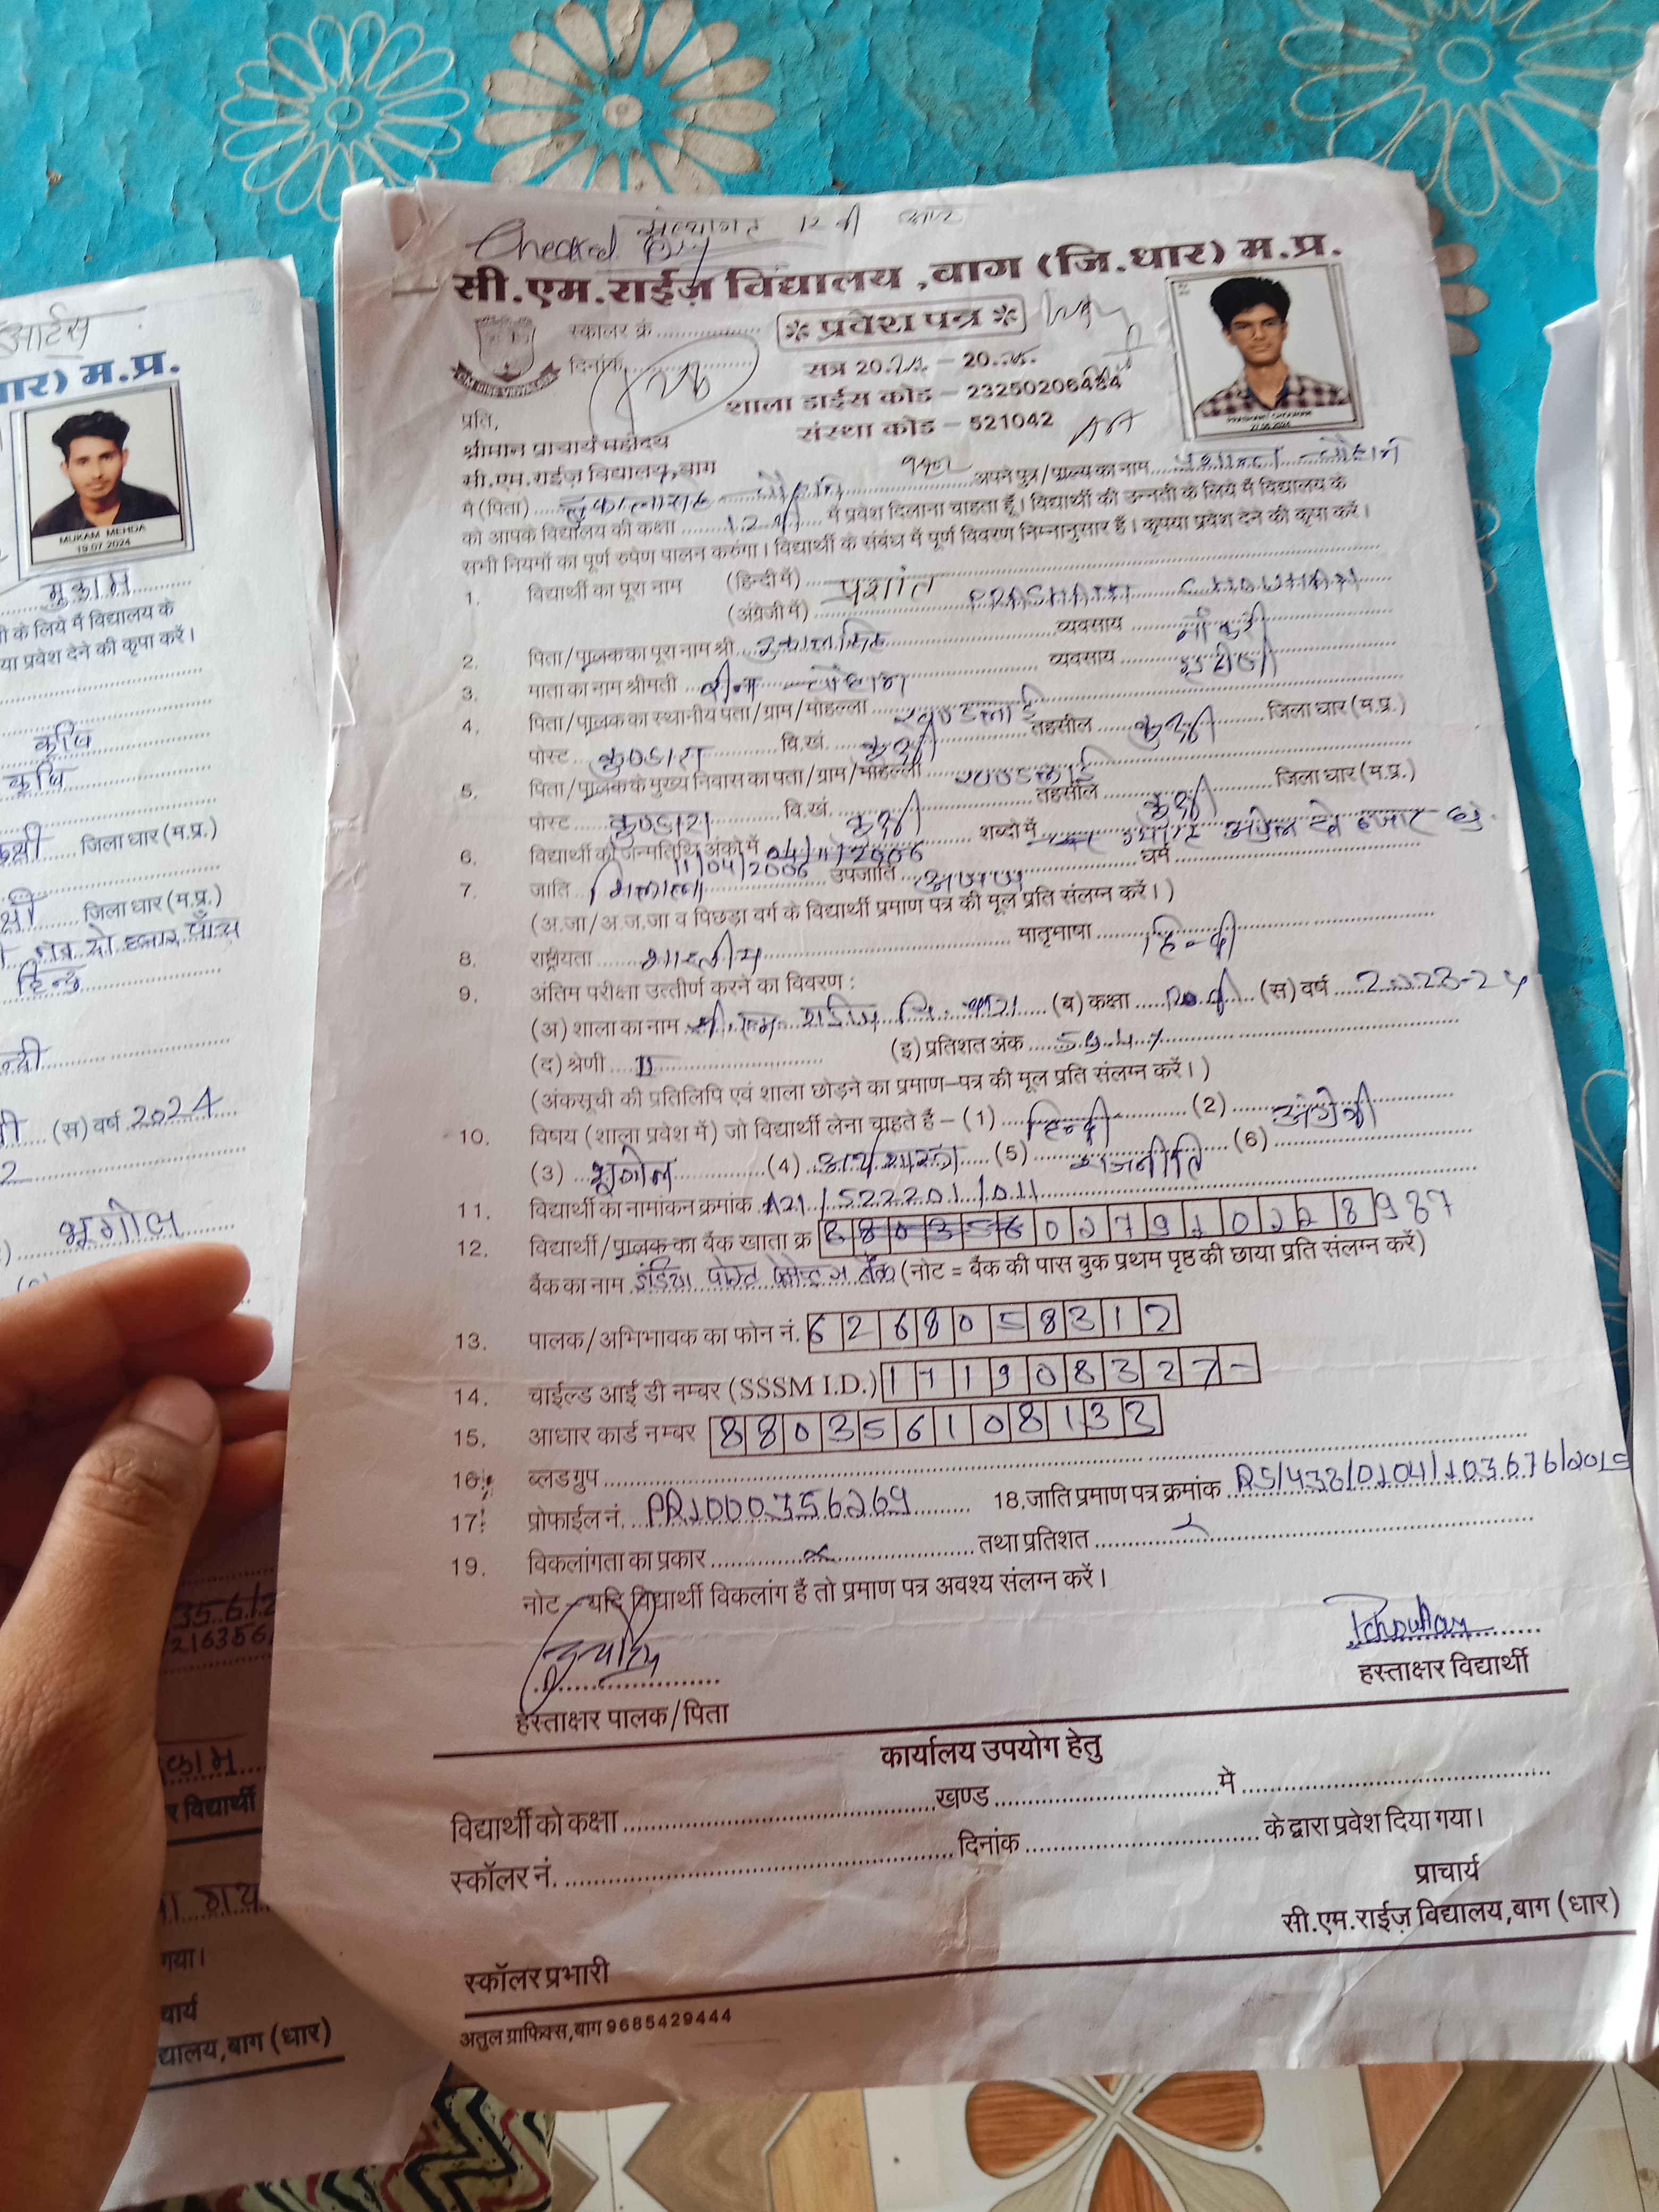 आर्टस
ार) म.प्र.
MUKAM MEHDA
19.07.2024
मुकाम
ी के लिये मैं विद्यालय के
या प्रवेश देने की कृपा करें।
कृषि
कृषि
जिला धार (म.प्र.)
जिला धार (म.प्र.)
दो हजार पाँच
हिन्दु
(स) वर्ष 2024
भूगोल
र विद्यार्थी
गया।
चार्य
द्यालय, बाग (धार)
Checked 12 वी
सी.एम.राईज़ विद्यालय, बाग (जि.धार) म.प्र.
स्कालर क्रं
* प्रवेश पत्र *
दिनांक
सत्र 20 – 20
C.M. RISE VIDYALAYA
शाला डाईस कोड – 23250206484
प्रति,
संस्था कोड – 521042
27.06.2024
श्रीमान प्राचार्य महोदय
सी.एम.राईज़ विद्यालय, बाग
मै (पिता) चौहान अपने पुत्र/पाल्य का नाम प्रशान्त चौहान
को आपके विद्यालय की कक्षा 12 वी में प्रवेश दिलाना चाहता हूँ। विद्यार्थी की उन्नती के लिये मैं विद्यालय के
सभी नियमों का पूर्ण रुपेण पालन करुंगा। विद्यार्थी के संबंध में पूर्ण विवरण निम्नानुसार हैं। कृपया प्रवेश देने की कृपा करें।
1. विद्यार्थी का पूरा नाम (हिन्दी में) प्रशांत
(अंग्रेजी में) PRASHANT CHOUHAN
2. पिता/पालक का पूरा नाम श्री व्यवसाय नौकरी
3. माता का नाम श्रीमती चौहान व्यवसाय
4. पिता/पालक का स्थानीय पता/ग्राम/मोहल्ला खण्डलाई
पोस्ट कुण्डारा वि.खं. कुक्षी तहसील कुक्षी जिला धार (म.प्र.)
5. पिता/पालक के मुख्य निवास का पता/ग्राम/मोहल्ला खण्डलाई
पोस्ट कुण्डारा वि.खं. कुक्षी तहसील कुक्षी जिला धार (म.प्र.)
6. विद्यार्थी की जन्मतिथि अंको में 04/11/2006 शब्दो में ग्यारह अप्रैल दो हजार छः
11/04/2006
7. जाति भिलाला उपजाति अ.ज.जा धर्म
(अ.जा/अ.ज.जा व पिछड़ा वर्ग के विद्यार्थी प्रमाण पत्र की मूल प्रति संलग्न करें।)
8. राष्ट्रीयता भारतीय मातृभाषा हिन्दी
9. अंतिम परीक्षा उत्तीर्ण करने का विवरण :
(अ) शाला का नाम सी.एम. राईज वि. बाग (ब) कक्षा (स) वर्ष 2023-24
(द) श्रेणी II (इ) प्रतिशत अंक 59.4%
(अंकसूची की प्रतिलिपि एवं शाला छोड़ने का प्रमाण–पत्र की मूल प्रति संलग्न करें।)
10. विषय (शाला प्रवेश में) जो विद्यार्थी लेना चाहते हैं – (1) हिन्दी (2) अंग्रेजी
(3) भूगोल (4) अर्थशास्त्र (5) राजनीति (6)
11. विद्यार्थी का नामांकन क्रमांक A21/522201/011
12. विद्यार्थी/पालक का बैंक खाता क्र 027910228987
बैंक का नाम इंडिया पोस्ट पेमेन्ट्स बैंक (नोट = बैंक की पास बुक प्रथम पृष्ठ की छाया प्रति संलग्न करें)
13. पालक/अभिभावक का फोन नं. 6268058312
14. चाईल्ड आई डी नम्बर (SSSM I.D.) 171908327-
15. आधार कार्ड नम्बर 880356108133
16. ब्लड ग्रुप
17. प्रोफाईल नं. PR1000356269 18. जाति प्रमाण पत्र क्रमांक RS/433/0104/103676/2019
19. विकलांगता का प्रकार तथा प्रतिशत
नोट – यदि विद्यार्थी विकलांग हैं तो प्रमाण पत्र अवश्य संलग्न करें।
Pchouhan
हस्ताक्षर पालक/पिता हस्ताक्षर विद्यार्थी
कार्यालय उपयोग हेतु
विद्यार्थी को कक्षा खण्ड में
स्कॉलर नं. दिनांक के द्वारा प्रवेश दिया गया।
प्राचार्य
सी.एम.राईज़ विद्यालय, बाग (धार)
स्कॉलर प्रभारी
अतुल ग्राफिक्स, बाग 9685429444